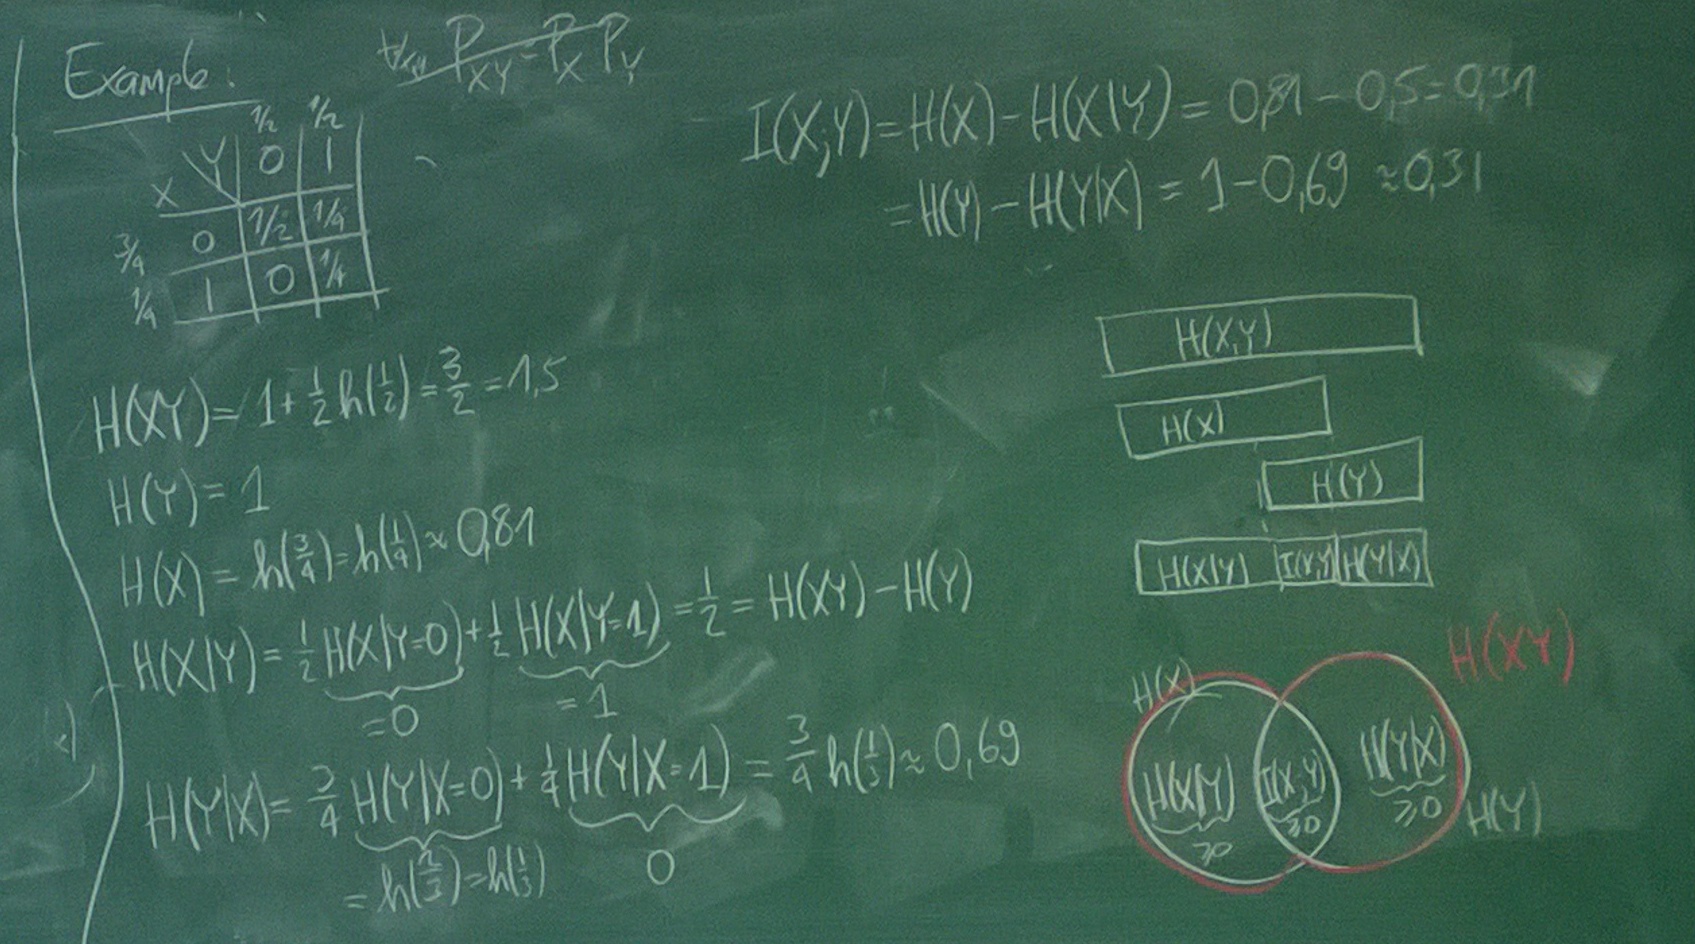 Example:
∀x,y P_XY = P_X P_Y
1/2 1/2
Y 0 1
X
3/4 0 1/2 1/4
1/4 1 0 1/4
H(XY) = 1 + 1/2 h(1/2) = 3/2 = 1,5
H(Y) = 1
H(X) = h(3/4) = h(1/4) ≈ 0,81
H(X|Y) = 1/2 H(X|Y=0) + 1/2 H(X|Y=1) = 1/2 = H(XY) - H(Y)
=0 =1
H(Y|X) = 3/4 H(Y|X=0) + 1/4 H(Y|X=1) = 3/4 h(1/3) ≈ 0,69
= h(2/3) = h(1/3) 0
I(X;Y) = H(X) - H(X|Y) = 0,81 - 0,5 = 0,31
= H(Y) - H(Y|X) = 1 - 0,69 ≈ 0,31
H(X,Y)
H(X)
H(Y)
H(X|Y) I(X;Y) H(Y|X)
H(XY)
H(X)
H(X|Y) I(X;Y) H(Y|X)
≥0 ≥0 ≥0
H(Y)